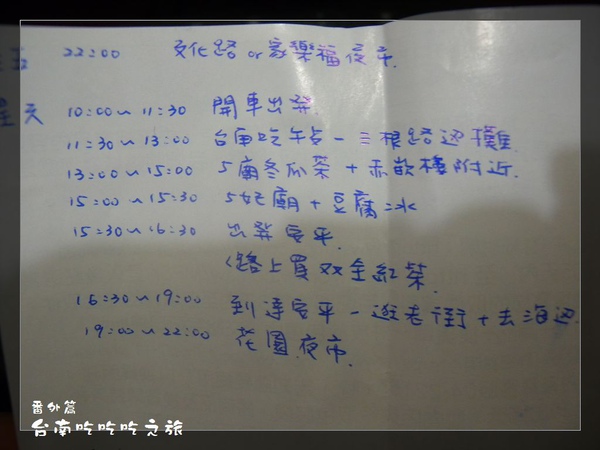 五 22:00 文化路 or 家樂福夜市.
星天 10:00~11:30 開車出発
11:30~13:00 台南吃午占-三根路边攤
13:00~15:00 5廟冬瓜茶+赤崁樓附近.
15:00~15:30 5妃廟+豆腐冰
15:30~16:30 出発安平.
く路上買双全紅茶.
16:30~19:00 到達安平-逛老街+去海边
19:00~22:00 花園夜市.
番外篇
台南吃吃吃之旅